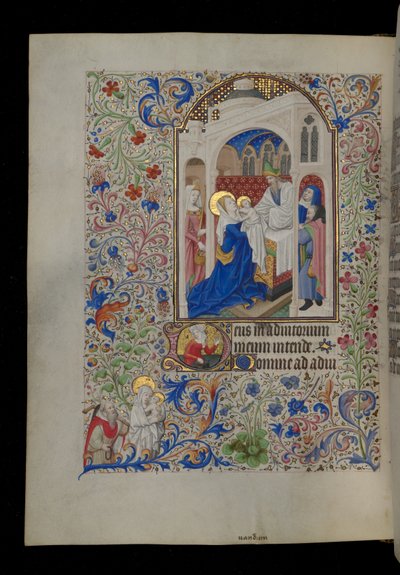 Deus in adiutorium
meum intende.
Domine ad adiu
uandum